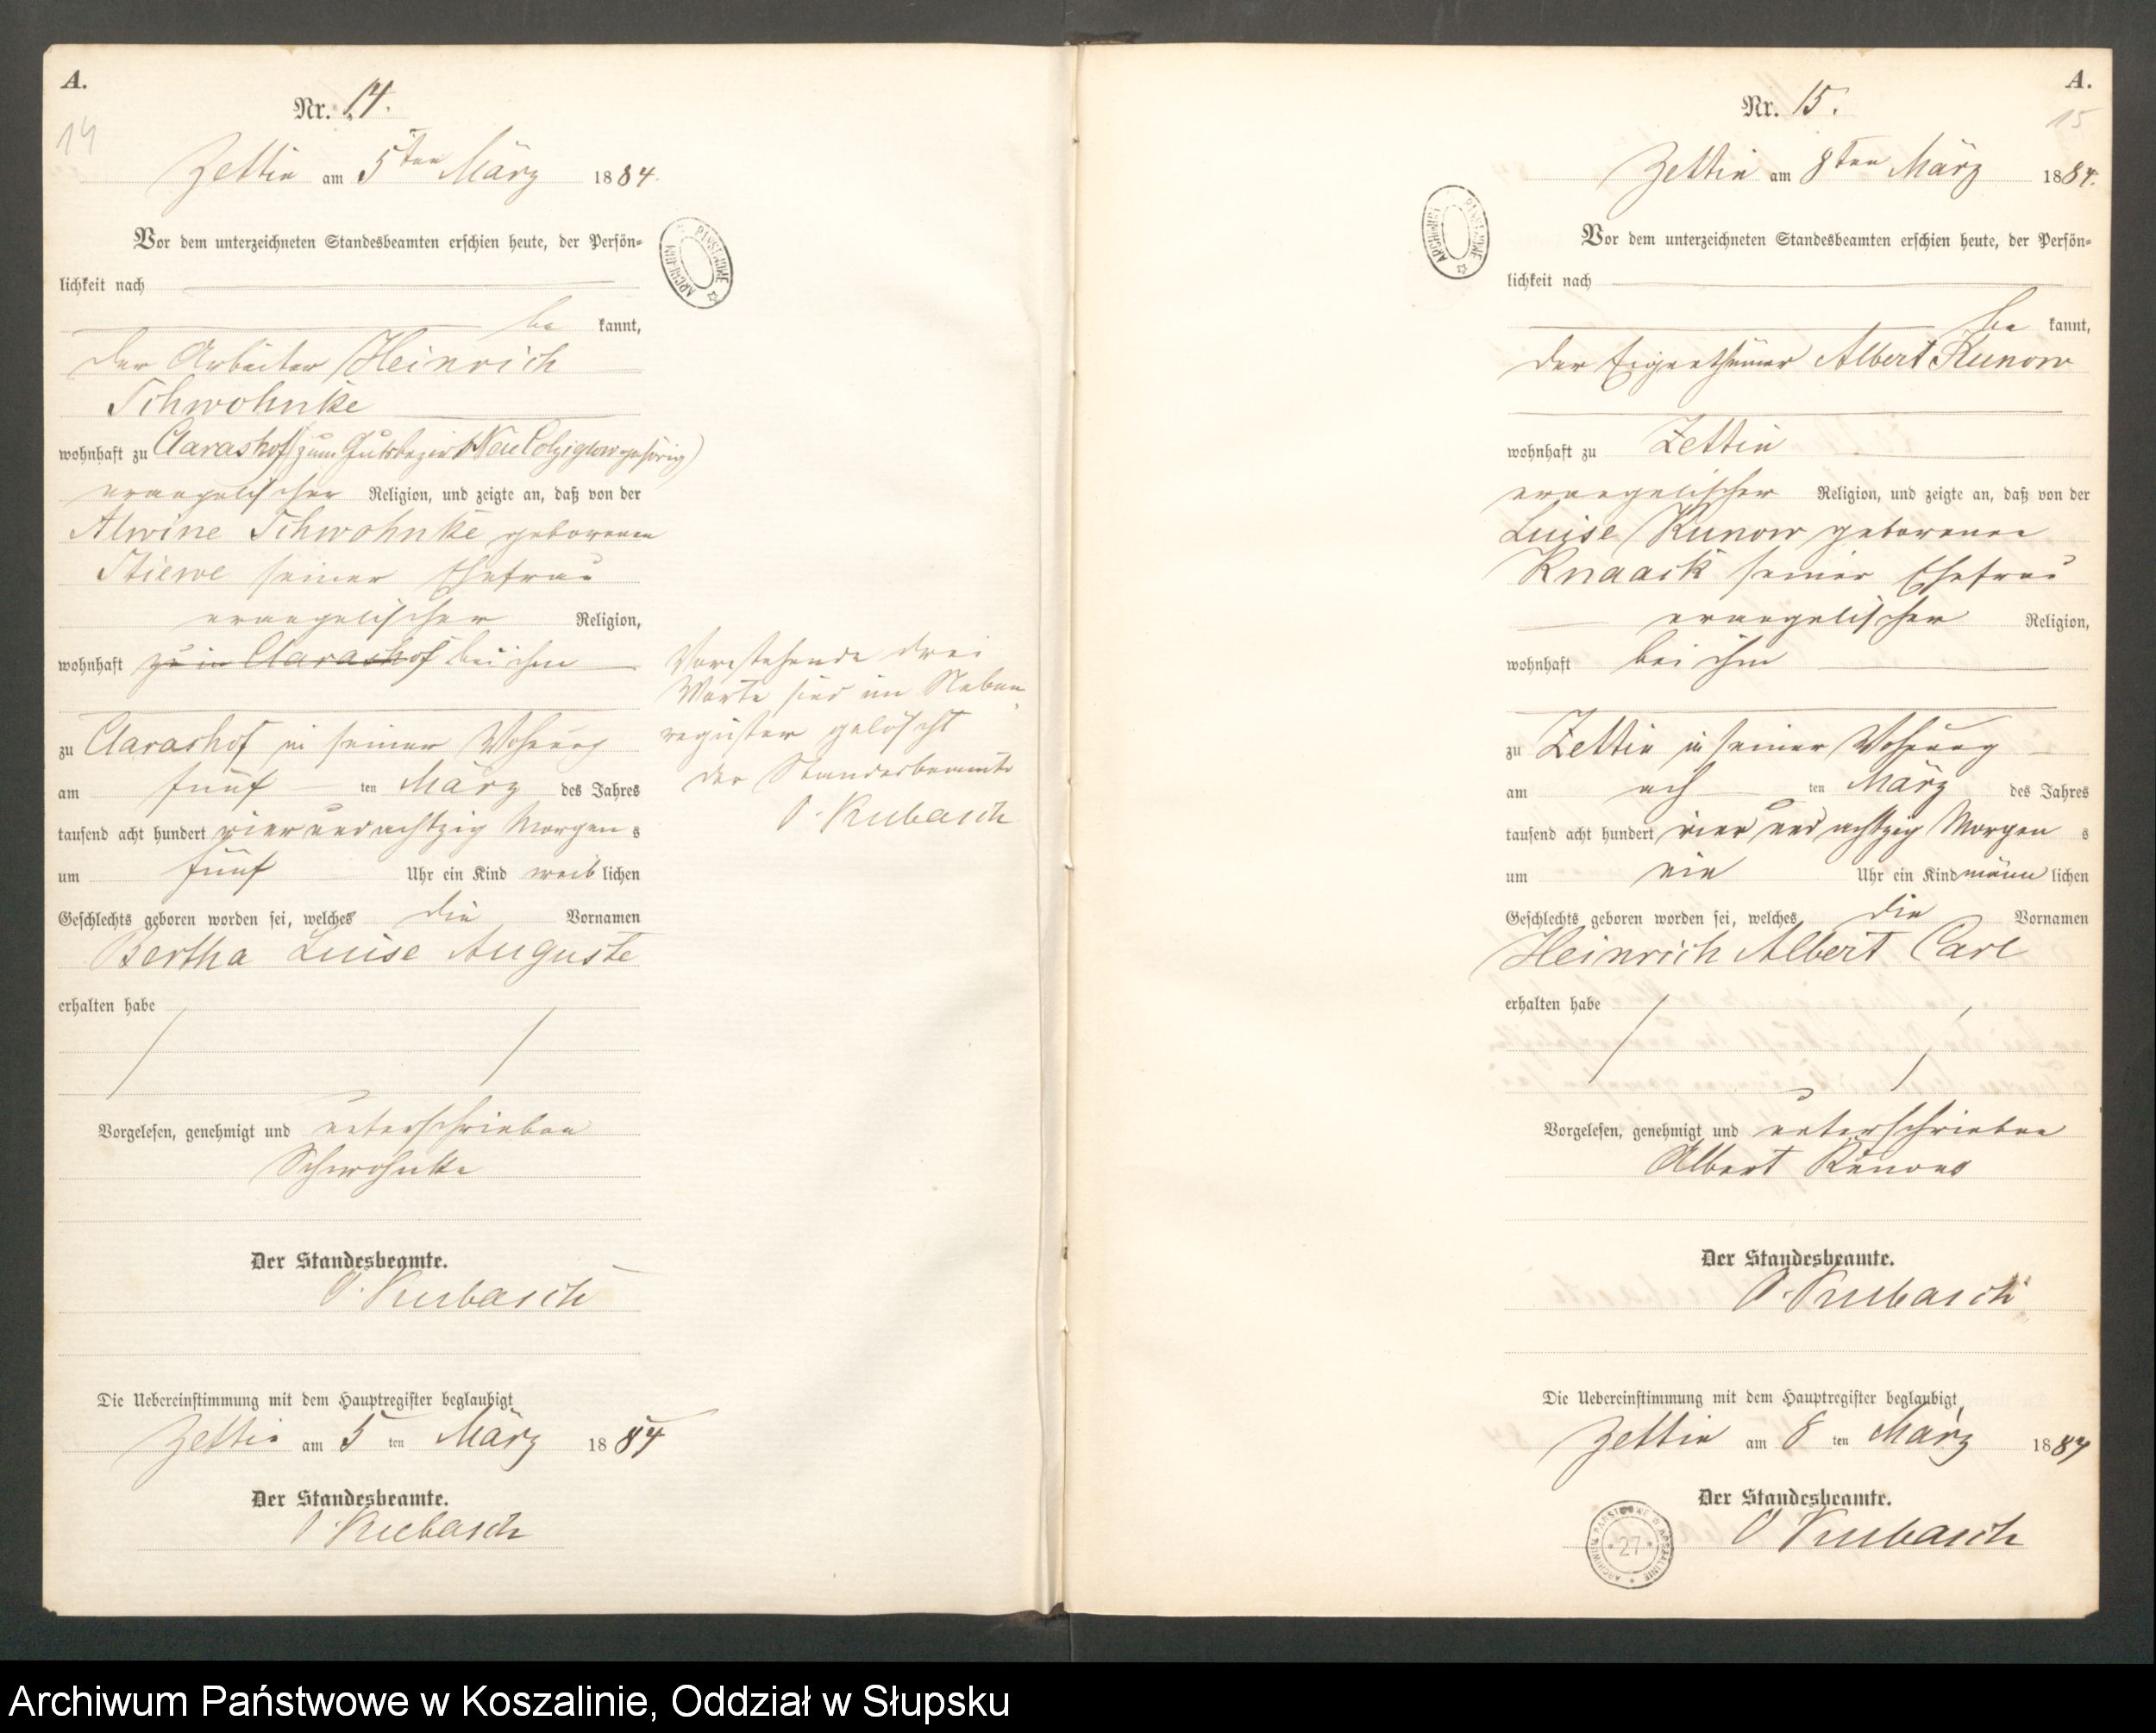 A.
Nr. 14.
14
Zettin am 5ten März 1884.
Vor dem unterzeichneten Standesbeamten erschien heute, der Persön-
lichkeit nach
be kannt,
der Arbeiter Heinrich
Schwohnke
wohnhaft zu Clarashof (zum Gutsbezirk Neu Colziglow gehörig)
evangelischer Religion, und zeigte an, daß von der
Alwine Schwohnke geborenen
Stiewe seiner Ehefrau
evangelischer Religion,
wohnhaft zu in Clarashof bei ihm
zu Clarashof in seiner Wohnung
am fünf ten März des Jahres
tausend acht hundert vier und achtzig Morgens
um fünf Uhr ein Kind weiblichen
Geschlechts geboren worden sei, welches die Vornamen
Bertha Luise Auguste
erhalten habe
Vorgelesen, genehmigt und unterschrieben
Schwohnke
Der Standesbeamte.
O. Kubasch
Die Uebereinstimmung mit dem Hauptregister beglaubigt
Zettin am 5 ten März 1884
Der Standesbeamte.
O. Kubasch
Vorstehende drei
Worte sind im Neben-
register gelöscht
der Standesbeamte
O. Kubasch
ARCHIWUM PAŃSTWOWE
A.
Nr. 15.
15
Zettin am 8ten März 1884.
Vor dem unterzeichneten Standesbeamten erschien heute, der Persön-
lichkeit nach
be kannt,
der Eigenthümer Albert Kunow
wohnhaft zu Zettin
evangelischer Religion, und zeigte an, daß von der
Luise Kunow geborenen
Knaack seiner Ehefrau
evangelischer Religion,
wohnhaft bei ihm
zu Zettin in seiner Wohnung
am ach ten März des Jahres
tausend acht hundert vier und achtzig Morgens
um ein Uhr ein Kind männlichen
Geschlechts geboren worden sei, welches die Vornamen
Heinrich Albert Carl
erhalten habe
Vorgelesen, genehmigt und unterschrieben
Albert Kunow
Der Standesbeamte.
O. Kubasch
Die Uebereinstimmung mit dem Hauptregister beglaubigt
Zettin am 8 ten März 1884
Der Standesbeamte.
O Kubasch
ARCHIWUM PAŃSTWOWE
ARCHIWUM PAŃSTWOWE W KOSZALINIE
27
Archiwum Państwowe w Koszalinie, Oddział w Słupsku